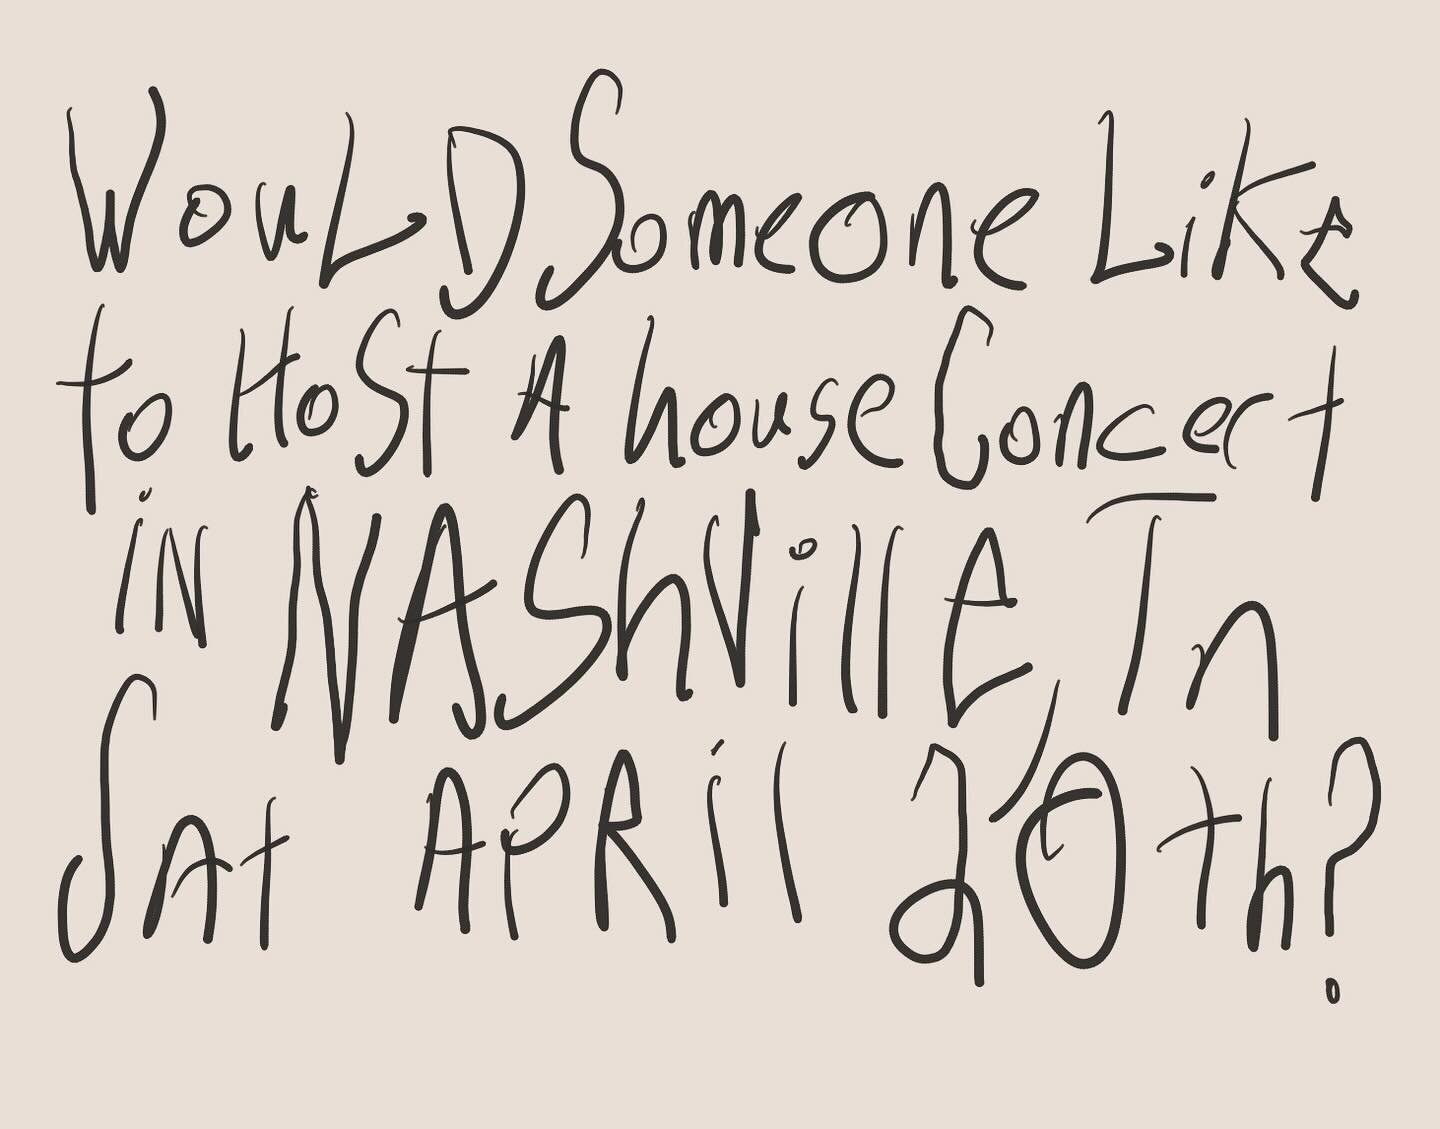 WouLD Someone Like
to HoSt A house Concert
iN NAShVillE, Tn
SAt APRil 20th?